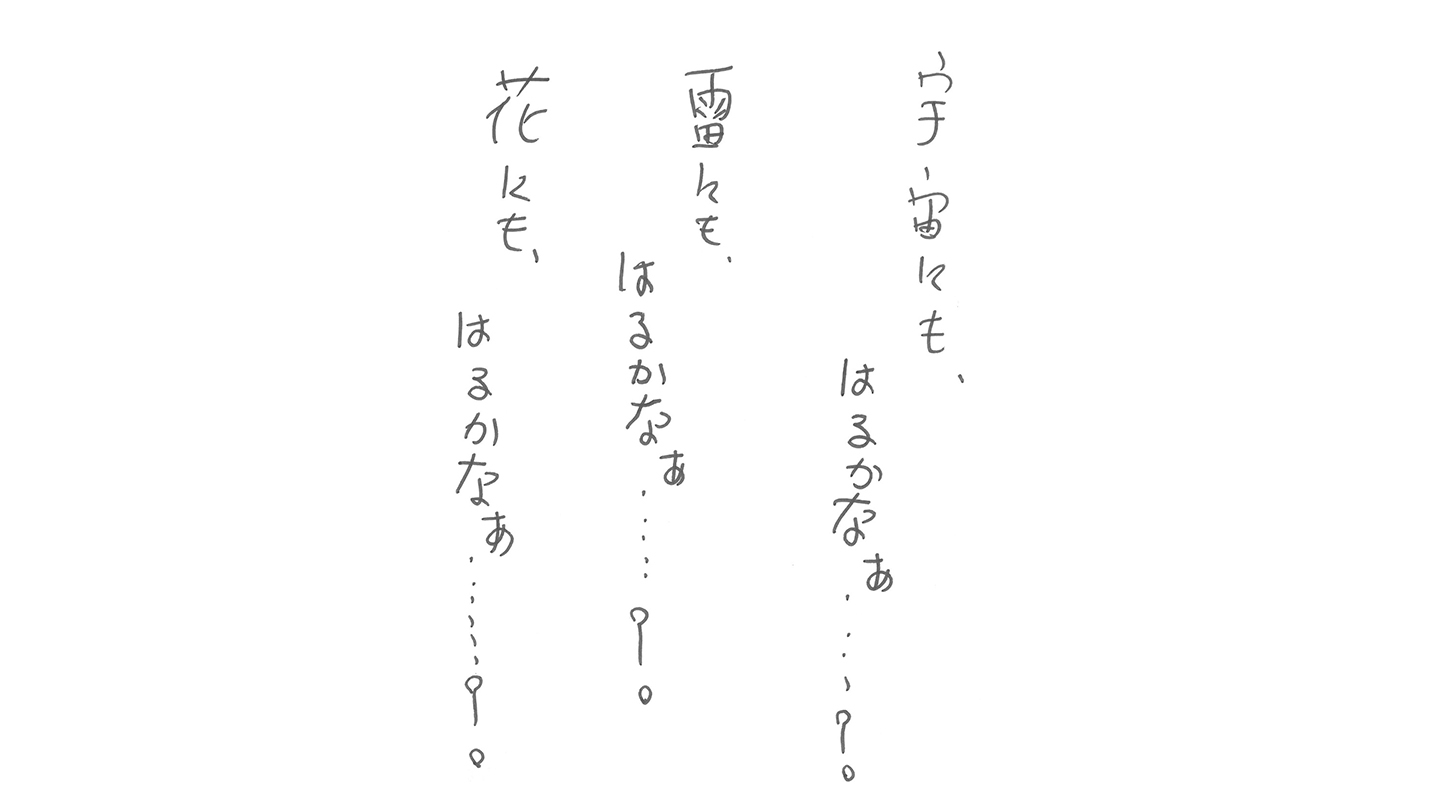 宇宙にも、
はるかなぁ……?。
雷にも、
はるかなぁ……?。
花にも、
はるかなぁ……?。